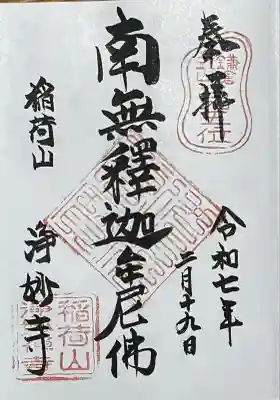 奉拝
令和七年
二月十九日
南無釋迦牟尼佛
稲荷山
浄妙寺
稲荷山